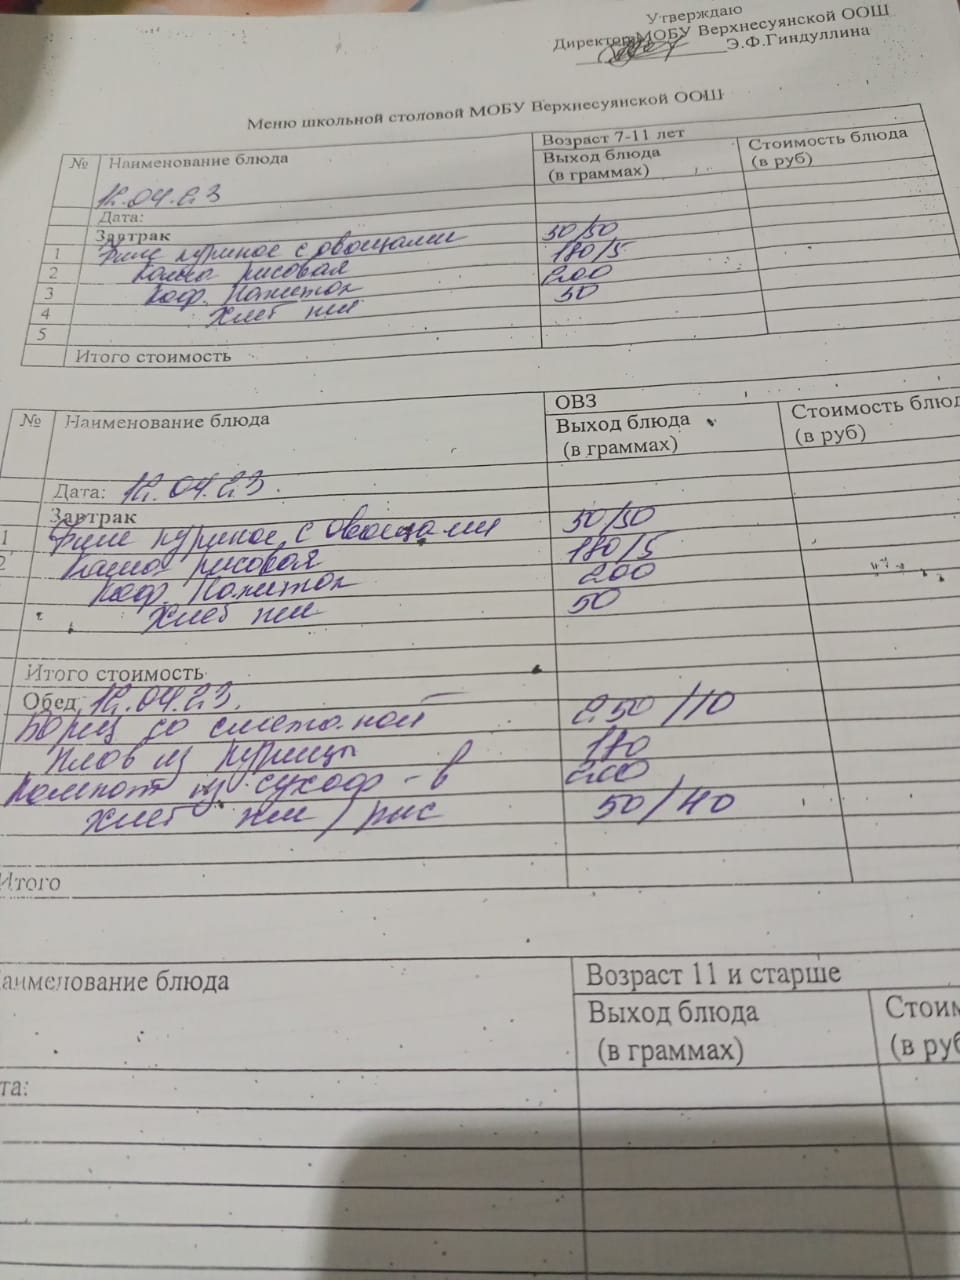 Утверждаю
Директор МОБУ Верхнесуянской ООШ
Э.Ф.Гиндуллина
Меню школьной столовой МОБУ Верхнесуянской ООШ
№ Наименование блюда Возраст 7-11 лет
Выход блюда (в граммах) Стоимость блюда (в руб)
12.04.23
Дата:
Завтрак
1 Филе куриное с овощами 50/50
2 Каша рисовая 180/5
3 Коф. Напиток 200
4 Хлеб пш 50
5
Итого стоимость
№ Наименование блюда ОВЗ
Выход блюда (в граммах) Стоимость блюд
(в руб)
Дата: 12.04.23.
Завтрак
1 Филе куриное с овощами 50/50
2 Каша рисовая 180/5
Коф. Напиток 200
Хлеб пш 50
Итого стоимость
Обед 12.04.23.
Борщ со сметаной 250/10
Плов из курицы 170
Компот из сухоф-в 200
Хлеб пш/рж 50/40
Итого
аименование блюда Возраст 11 и старше
Выход блюда (в граммах) Стоим
(в руб
та: